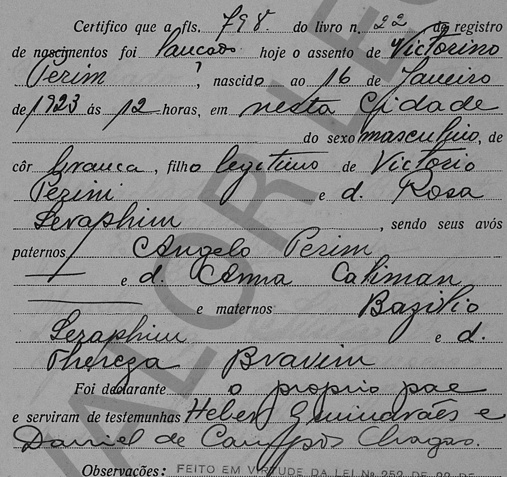 Certifico que a fls. 798. do livro n. 22 do registro
de nascimentos foi lançado hoje o assento de Victorino
Perim, nascido ao 16 de Janeiro
de 1923 ás 12 horas, em nesta Cidade
do sexo masculino, de
côr branca, filho legitimo de Victorio
Perim e d. Rosa
Seraphim, sendo seus avós
paternos Angelo Perim
e d. Anna Caliman
e maternos Bazilio
Seraphim e d.
Thereza Bravim
Foi declarante o proprio pae
e serviram de testemunhas Heber Guimarães e
Daniel de Campos Chagas.
Observações: FEITO EM VIRTUDE DA LEI Nº 252 DE 22 DE
VALOR LEG